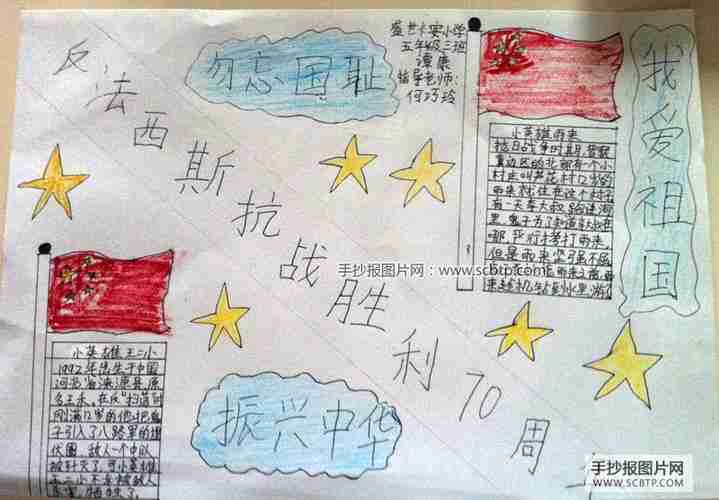 反法西斯抗战胜利70周
勿忘国耻
盛世卡宾小学
五年级三班
谭康
指导老师:
何巧玲
我爱祖国
小英雄雨来
抗日战争时期,晋察
冀边区的北部有一个小
村庄叫芦花村,12岁的
雨来就住在这个村子
有一天李大叔
哪,严刑拷打雨来,
但是雨来坚强不屈
手抄报图片网:www.scbtp.com
小英雄王二小
1992年出生于中国
河北省涞源县,原
名王禾,在反"扫荡"时
刚满12岁的他把鬼
子引入了八路军的埋
伏圈,敌人一个中队
被歼灭了,可小英雄
王二小不幸被敌人
杀害,牺牲了
振兴中华
手抄报图片网
WWW.SCBTP.COM